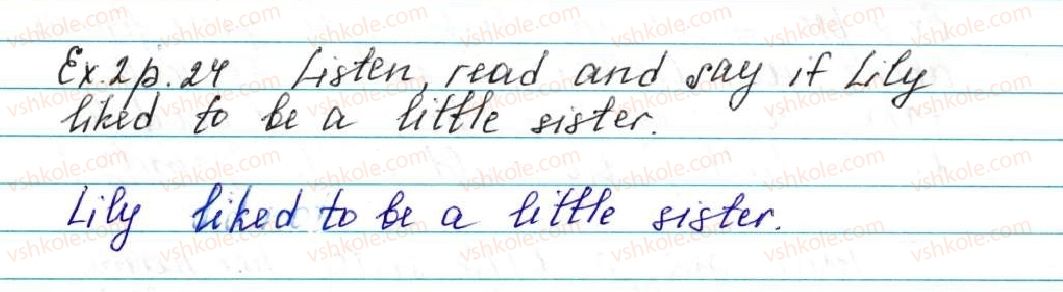 Ex. 2 p. 24 Listen, read and say if Lily
liked to be a little sister.
Lily liked to be a little sister.